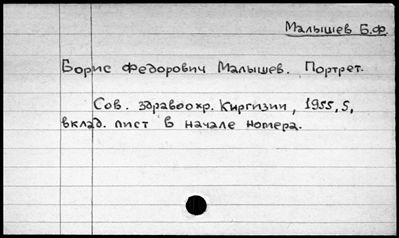 Малышев Б.Ф.
Борис Федорович Малышев. Портрет.
Сов. здравоохр. Киргизии, 1955, 5,
вклад. лист в начале номера.